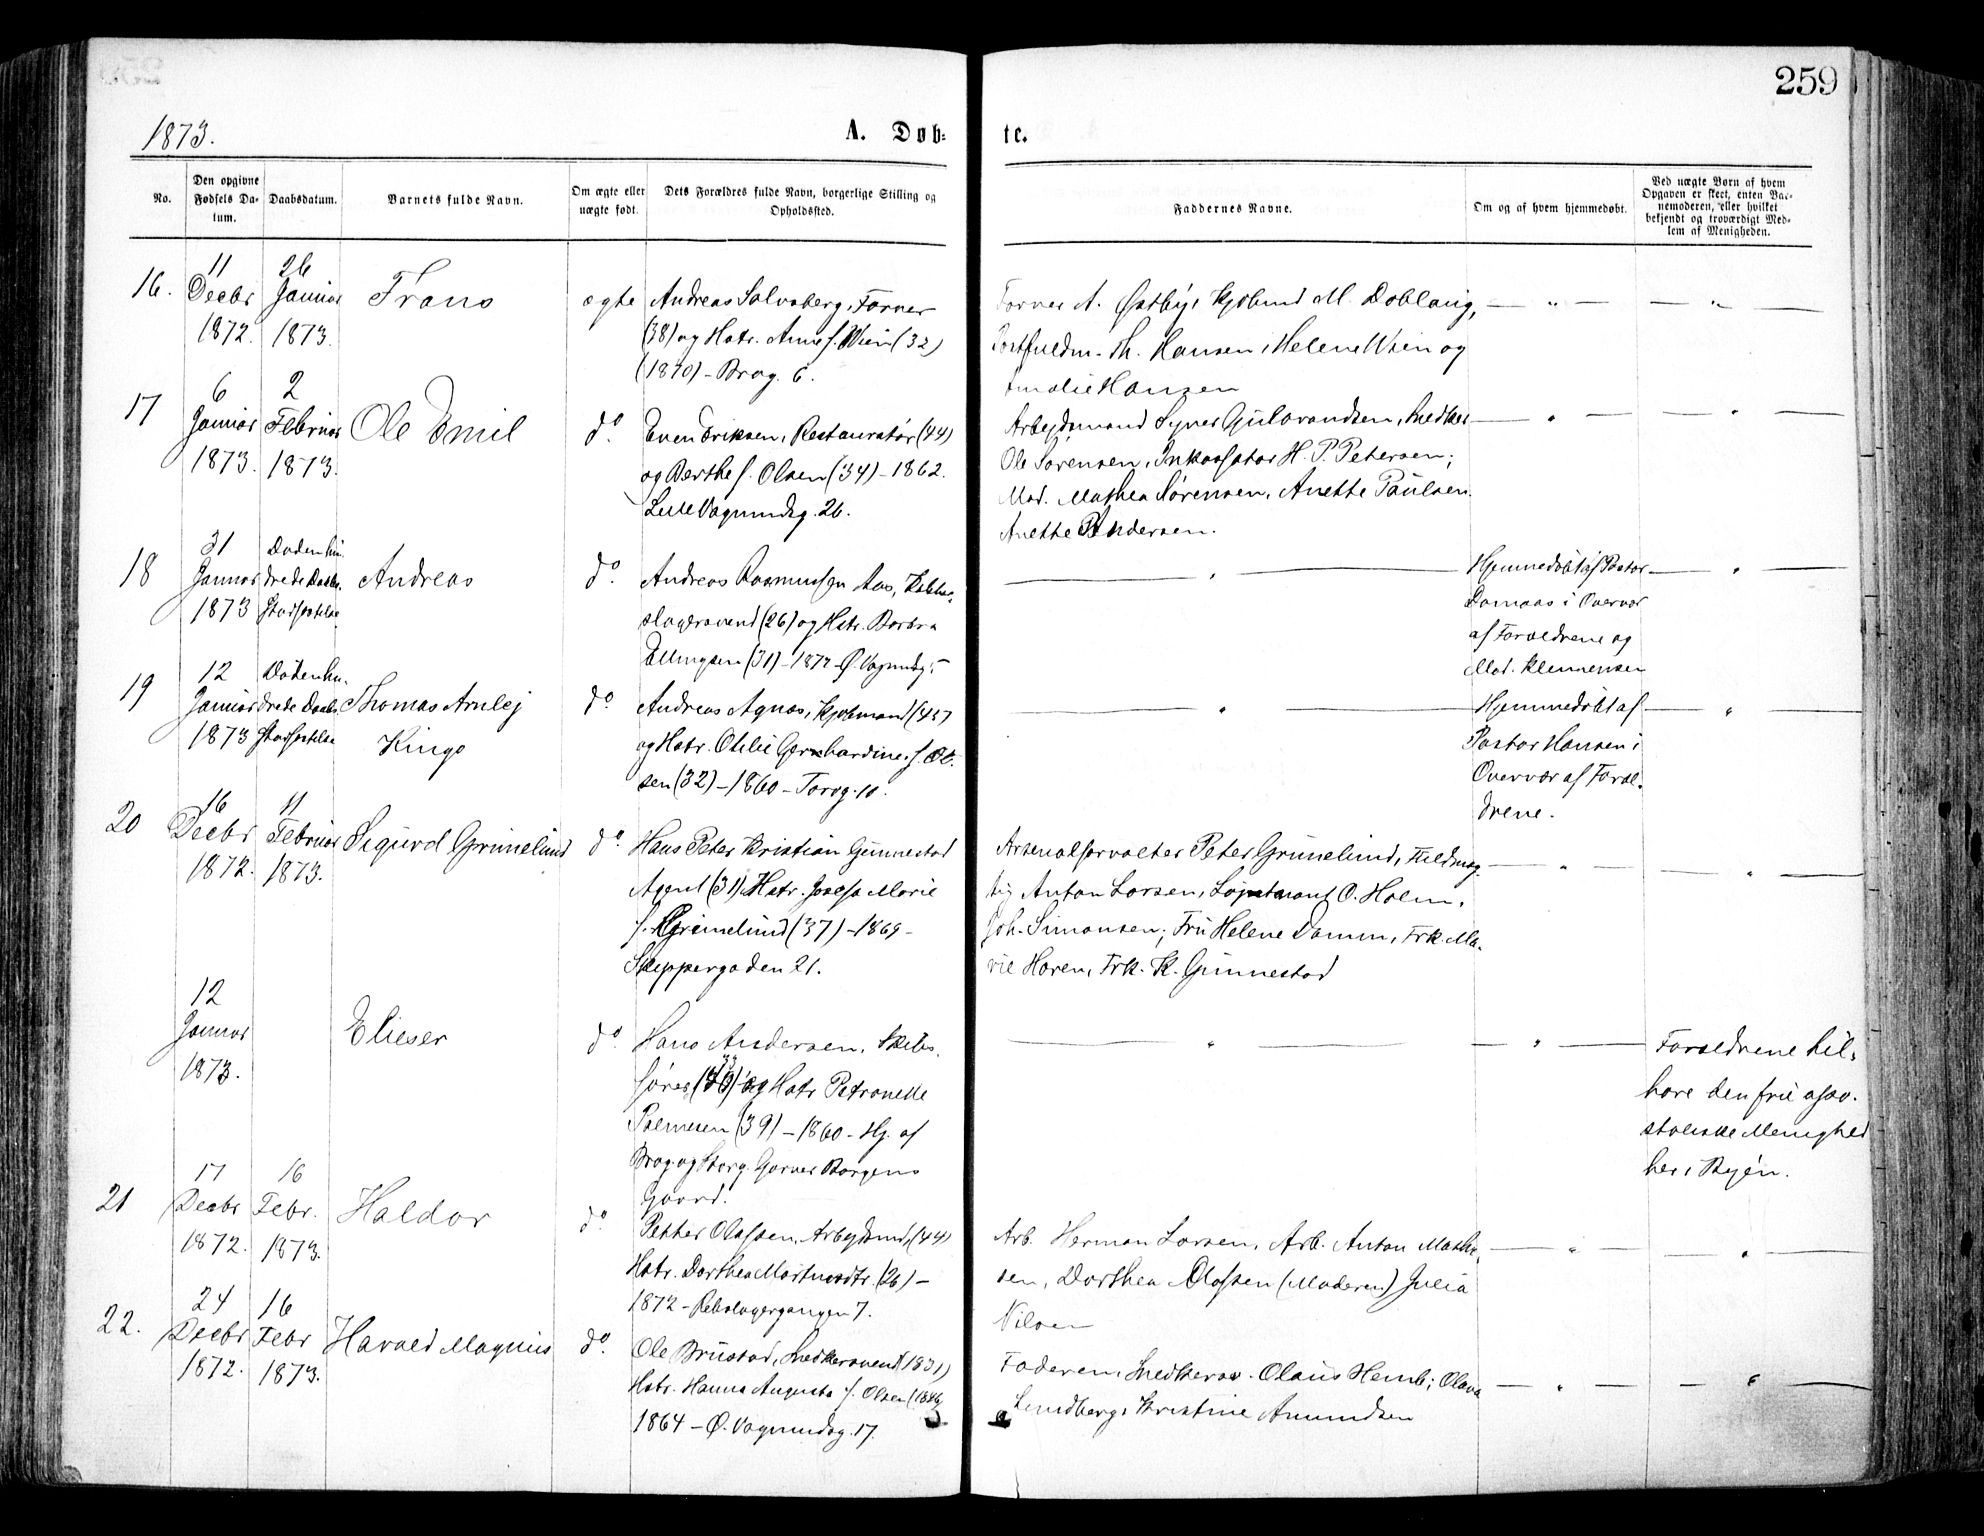 259
1873.
A. Døb-
te.
No.
Den opgivne Fødsels Da-
tum.
Daabsdatum.
Barnets fulde Navn.
Om ægte eller
uægte født.
Dets Forældres fulde Navn, borgerlige Stilling og
Opholdssted.
Faddernes Navne.
Om og af hvem hjemmedøbt.
Ved uægte Børn af hvem
Opgaven er skeet, enten Bar-
nemoderen, eller hvilket
bekjendt og troværdigt Med-
lem af Menigheden.
16.
11
Decbr
1872.
26
Januar
1873.
Frans
ægte
Andreas Solvsberg, Farver
(38) og Hstr. Anne f. Wien (32)
(1870) - Brog. 6.
Farver A. Østby, Kjøbmd M. Doblaug,
Postfuldm. Th. Hansen, Helene Wien og
Amalie Hansen
17
6
Januar
1873.
2
Februar
1873.
Ole Emil
do.
Even Eriksen, Restauratør (44)
og Berthe f. Olsen (34) - 1862.
Lille Vognmdsg. 26.
Arbeidsmand Syver Gulbrandsen, Snedker
Ole Sørensen, Inkassator H. P. Petersen;
Mad. Mathea Sørensen, Anette Paulsen.
Anette Andersen.
18
31
Januar
1873
Døden hin-
drede Daabs
Stadfæstelse
Andreas
do.
Andreas Rasmussen Aas, Kobber-
slagersvend (26) og Hstr. Barbra
Ellingsen (31) - 1872 - Ø. Vognmdsg. 5
Hjemmedøbt af Pastor
Damaas i Overvær
af Forældrene og
Mad. Klemmensen
19
12
Januar
1873
Døden hin-
drede Daabs
Stadfæstelse
Thomas Arnlej
Kingo
do.
Andreas Agnæs, Kjøbmand (43)
og Hstr. Otilie Gerhardine f. Ol-
sen (32) - 1860 - Torvg. 10.
Hjemmedøbt af
Pastor Hansen i
Overvær af Foræl-
drene.
20
16
Decbr
1872.
11
Februar
1873.
Sigurd Grimelund
do.
Hans Peter Kristian Gunnestad
Agent (31) Hstr. Josefa Marie
f. Grimelund (37) - 1869 -
Skippergaden 21.
Arsenalforvalter Peter Grimelund, Fuldmæg-
tig Anton Larsen, Løjtnant O. Holm,
Joh. Simonsen; Fru Helene Damm, Frk. Ma-
rie Horen, Frk. K. Gunnestad
12
Januar
1873.
Elieser
do.
Hans Andersen, Skibs-
fører (33) og Hstr Petronelle
Palmesen (39) - 1860 - Hj. af
Brog. og Storg. Garver Borgens
Gaard.
Forældrene til-
høre den frie apo-
stoliske Menighed
her i Byen.
21
17
Decbr
1872.
16
Febr.
1873.
Haldor
do.
Petter Olassen, Arbejdsmd, (44)
Hstr. Dorthea Martinsdtr. (26) -
1872 - Rebslagergangen 7.
Arb. Herman Larsen, Arb. Anton Mathi-
sen, Dorthea Olassen (Moderen) Julia
Nilsen
22.
24
Decbr
1872.
16
Febr
1873.
Harald Magnus
do.
Ole Brustad, Snedkersvend (1831)
Hstr. Hanna Augusta f. Olsen (1846)
1864 - Ø. Vognmdsg. 17.
Faderen, Snedkersv. Olaus Hemb; Olava
Lundberg, Kristine Amundsen